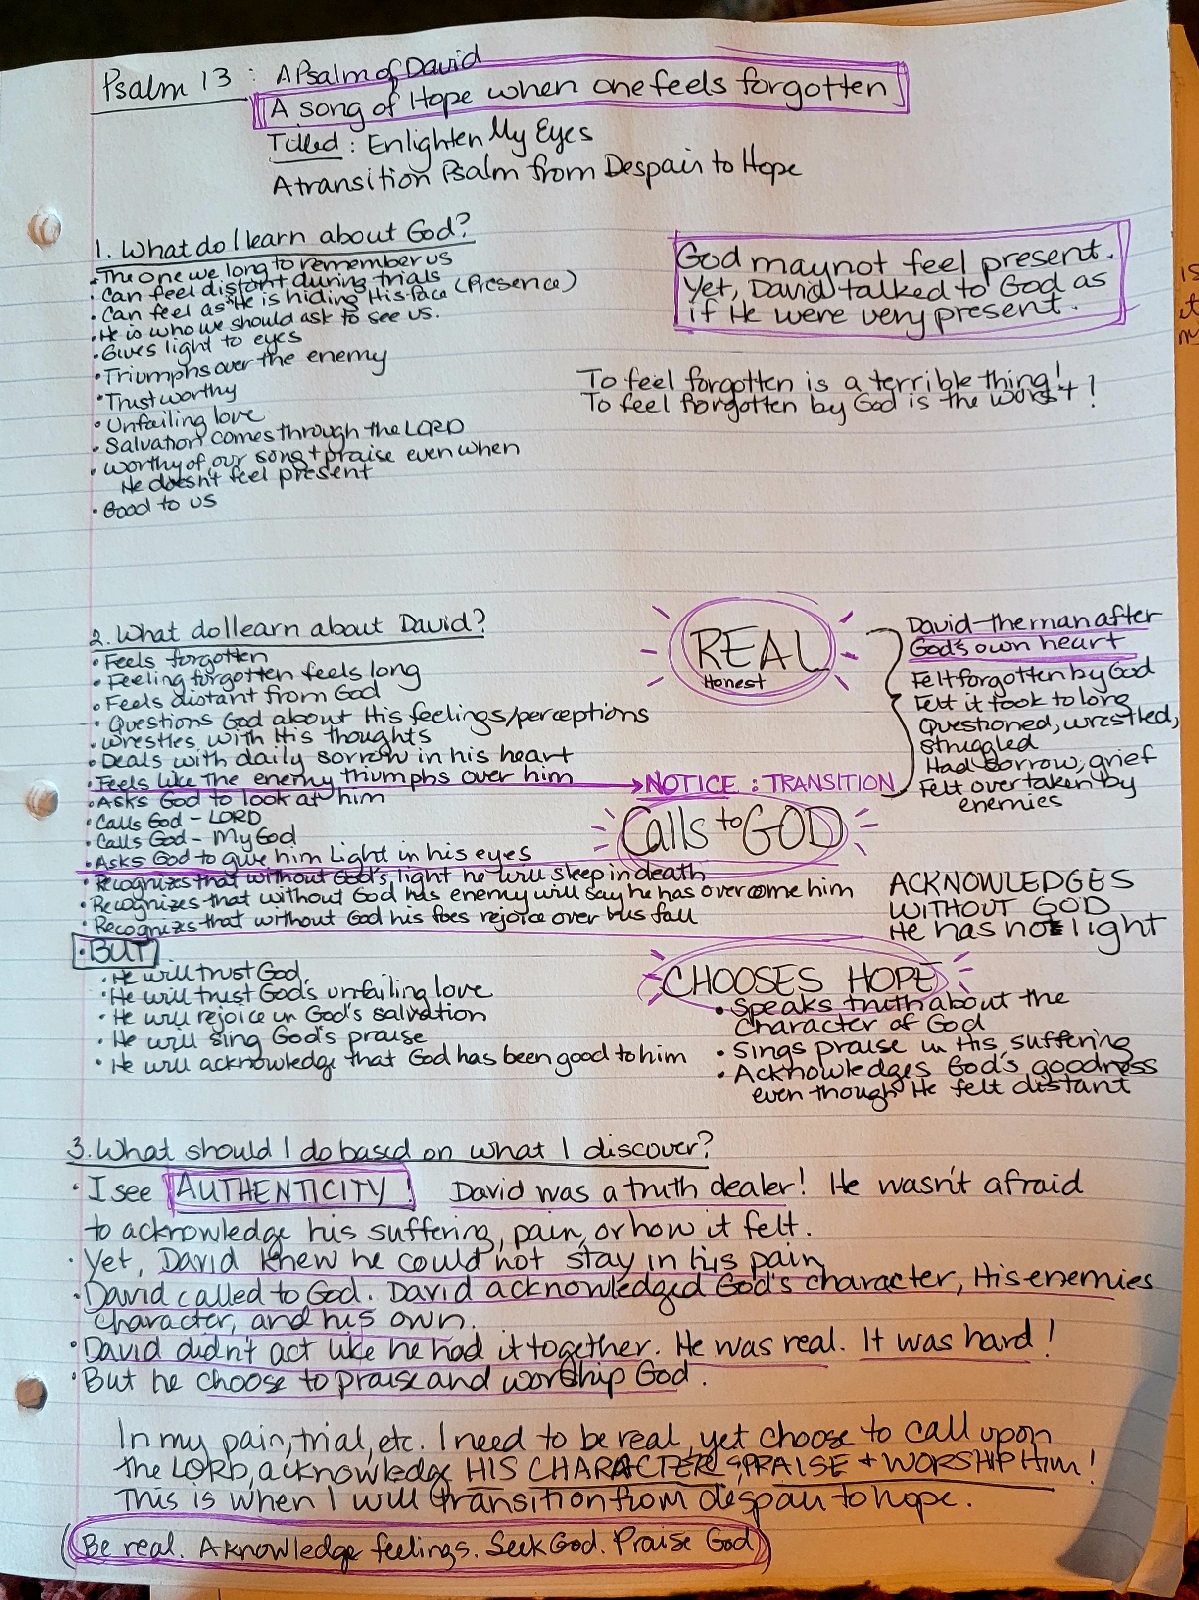 Psalm 13 : A Psalm of David
A song of Hope when one feels forgotten
Titled : Enlighten My Eyes
A transition Psalm from Despair to Hope
1. What do I learn about God?
• The one we long to remember us
• Can feel distant during trials
• Can feel as He is hiding His face (Presence)
• He is who we should ask to see us.
• Gives light to eyes
• Triumphs over the enemy
• Trustworthy
• Unfailing love
• Salvation comes through the LORD
• Worthy of our song + praise even when
He doesn't feel present
• Good to us
God may not feel present.
Yet, David talked to God as
if He were very present.
To feel forgotten is a terrible thing!
To feel forgotten by God is the worst!
2. What do I learn about David?
• Feels forgotten
• Feeling forgotten feels long
• Feels distant from God
• Questions God about His feelings/perceptions
• Wrestles with His thoughts
• Deals with daily sorrow in his heart
• Feels like the enemy triumphs over him → NOTICE : TRANSITION
• Asks God to look at him
• Calls God - LORD
• Calls God - My God
• Asks God to give him Light in his eyes
• Recognizes that without God's light he will sleep in death
• Recognizes that without God his enemy will say he has overcome him
• Recognizes that without God his foes rejoice over his fall
• BUT
• He will trust God.
• He will trust God's unfailing love
• He will rejoice in God's salvation
• He will sing God's praise
• He will acknowledge that God has been good to him
REAL
Honest
David - the man after
God's own heart
Felt forgotten by God
Felt it took to long
Questioned, wrestled,
struggled
Had sorrow, grief
Felt overtaken by
enemies
Calls to GOD
ACKNOWLEDGES
WITHOUT GOD
He has no light
CHOOSES HOPE
• Speaks truth about the
Character of God
• Sings praise in His suffering
• Acknowledges God's goodness
even though He felt distant
3. What should I do based on what I discover?
• I see AUTHENTICITY! David was a truth dealer! He wasn't afraid
to acknowledge his suffering, pain, or how it felt.
• Yet, David knew he could not stay in his pain
• David called to God. David acknowledged God's character, His enemies
character, and his own.
• David didn't act like he had it together. He was real. It was hard!
• But he choose to praise and worship God.
In my pain, trial, etc. I need to be real, yet choose to call upon
the LORD, acknowledge HIS CHARACTER, PRAISE + WORSHIP Him!
This is when I will transition from despair to hope.
Be real. Aknowledge feelings. Seek God. Praise God
is
it